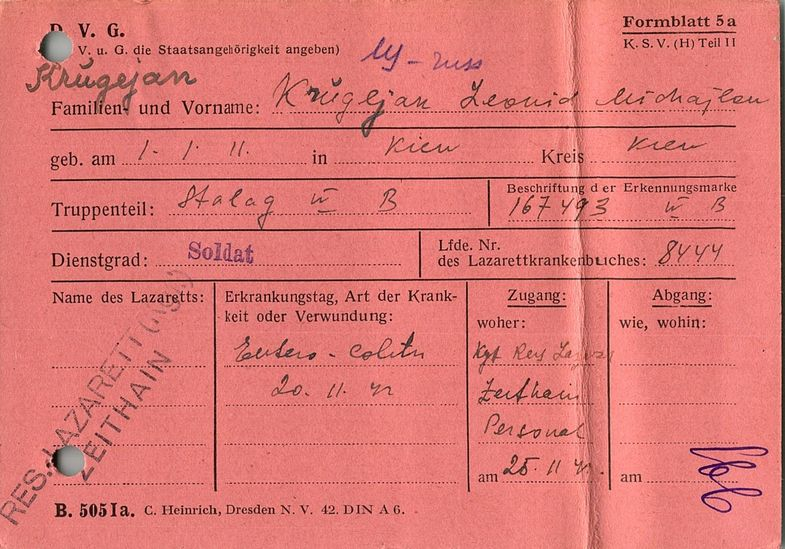 D. V. G.
V. u. G. die Staatsangehörigkeit angeben)
Formblatt 5a
K. S. V. (H) Teil II
russ
Krugejan
Familien- und Vorname: Krugejan Leonid Michajlow
geb. am 1. 1. 11. in Kiew Kreis Kiew
Truppenteil: Stalag IV B
Beschriftung der Erkennungsmarke
167493 IV B
Dienstgrad: Soldat
Lfde. Nr.
des Lazarettkrankenbuches: 8444
Name des Lazaretts:
RES. LAZARETT
ZEITHAIN
Erkrankungstag, Art der Krank-
heit oder Verwundung:
Entero-Colitis
20. 11. 42
Zugang:
woher:
Kgf Res Lazar
Zeithain
Personal
am 25. 11 42.
Abgang:
wie, wohin:
am
B. 505 Ia. C. Heinrich, Dresden N. V. 42. DIN A 6.